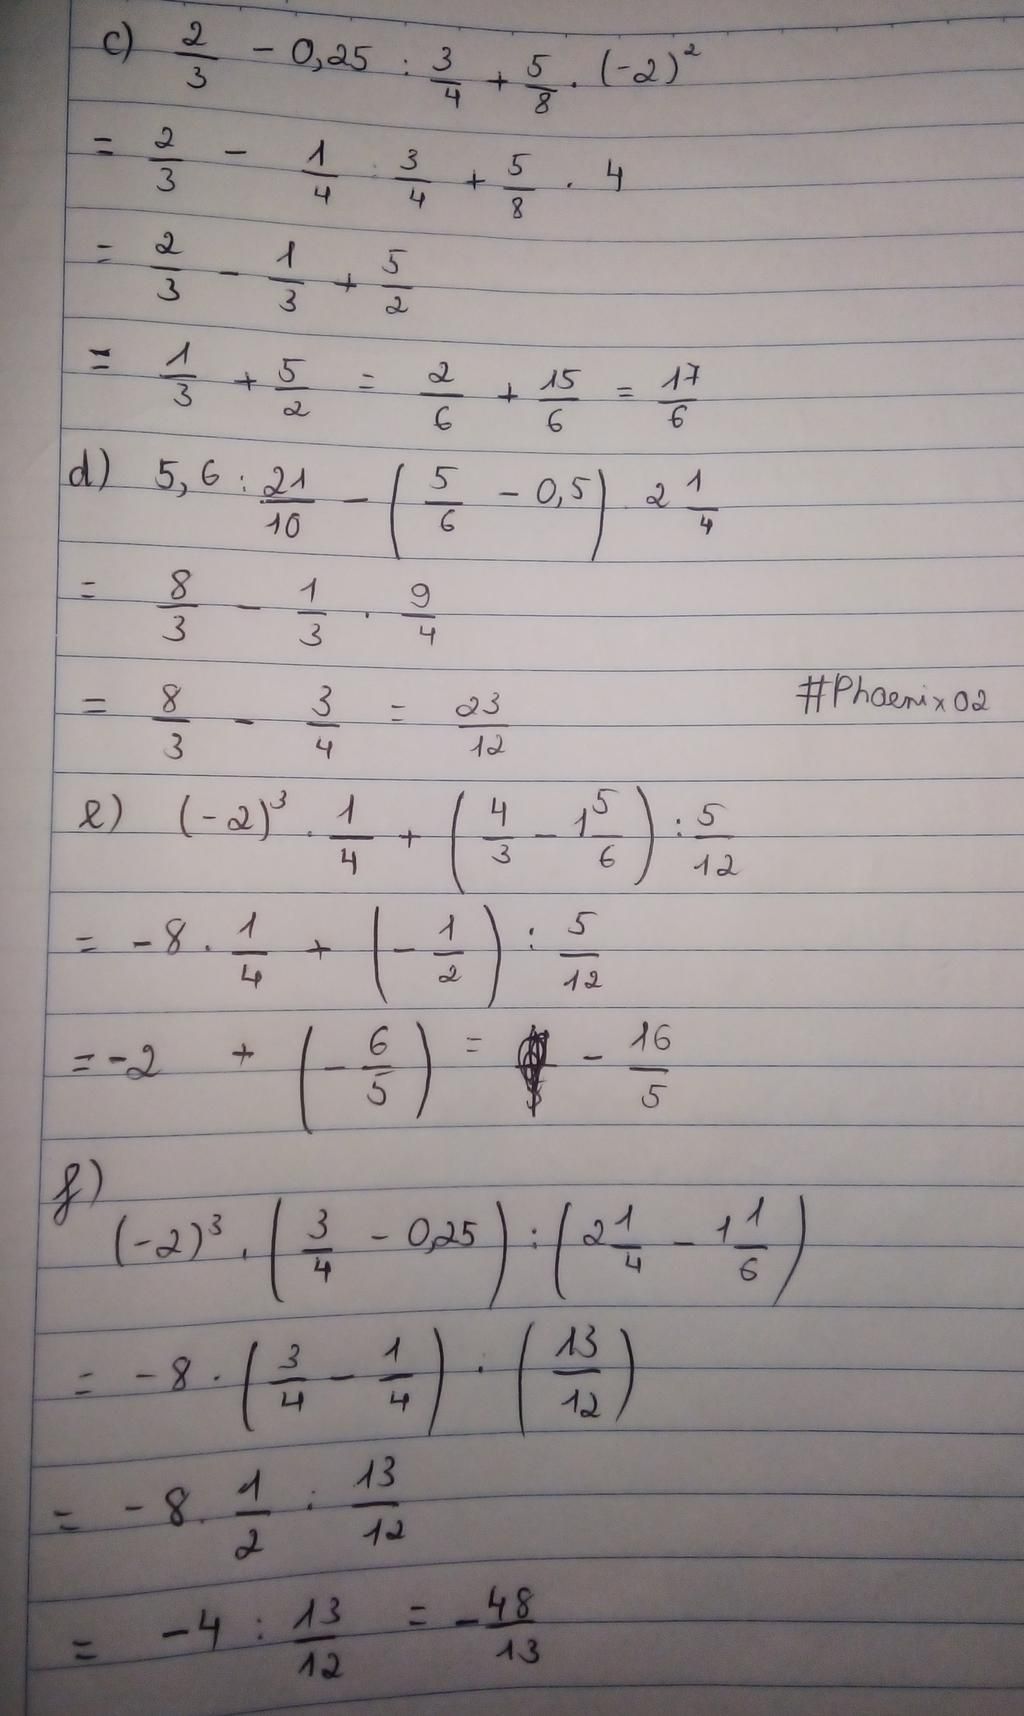 c) 2/3 - 0,25 : 3/4 + 5/8 . (-2)²
= 2/3 - 1/4 : 3/4 + 5/8 . 4
= 2/3 - 1/3 + 5/2
= 1/3 + 5/2 = 2/6 + 15/6 = 17/6
d) 5,6 : 21/10 - (5/6 - 0,5) . 2 1/4
= 8/3 - 1/3 . 9/4
= 8/3 - 3/4 = 23/12
#Phoenix02
e) (-2)³ . 1/4 + (4/3 - 1 5/6) : 5/12
= -8 . 1/4 + (-1/2) : 5/12
= -2 + (-6/5) = - 16/5
f)
(-2)³ . (3/4 - 0,25) : (2 1/4 - 1 1/6)
= -8 . (3/4 - 1/4) . (13/12)
= -8 . 1/2 : 13/12
= -4 : 13/12 = -48/13